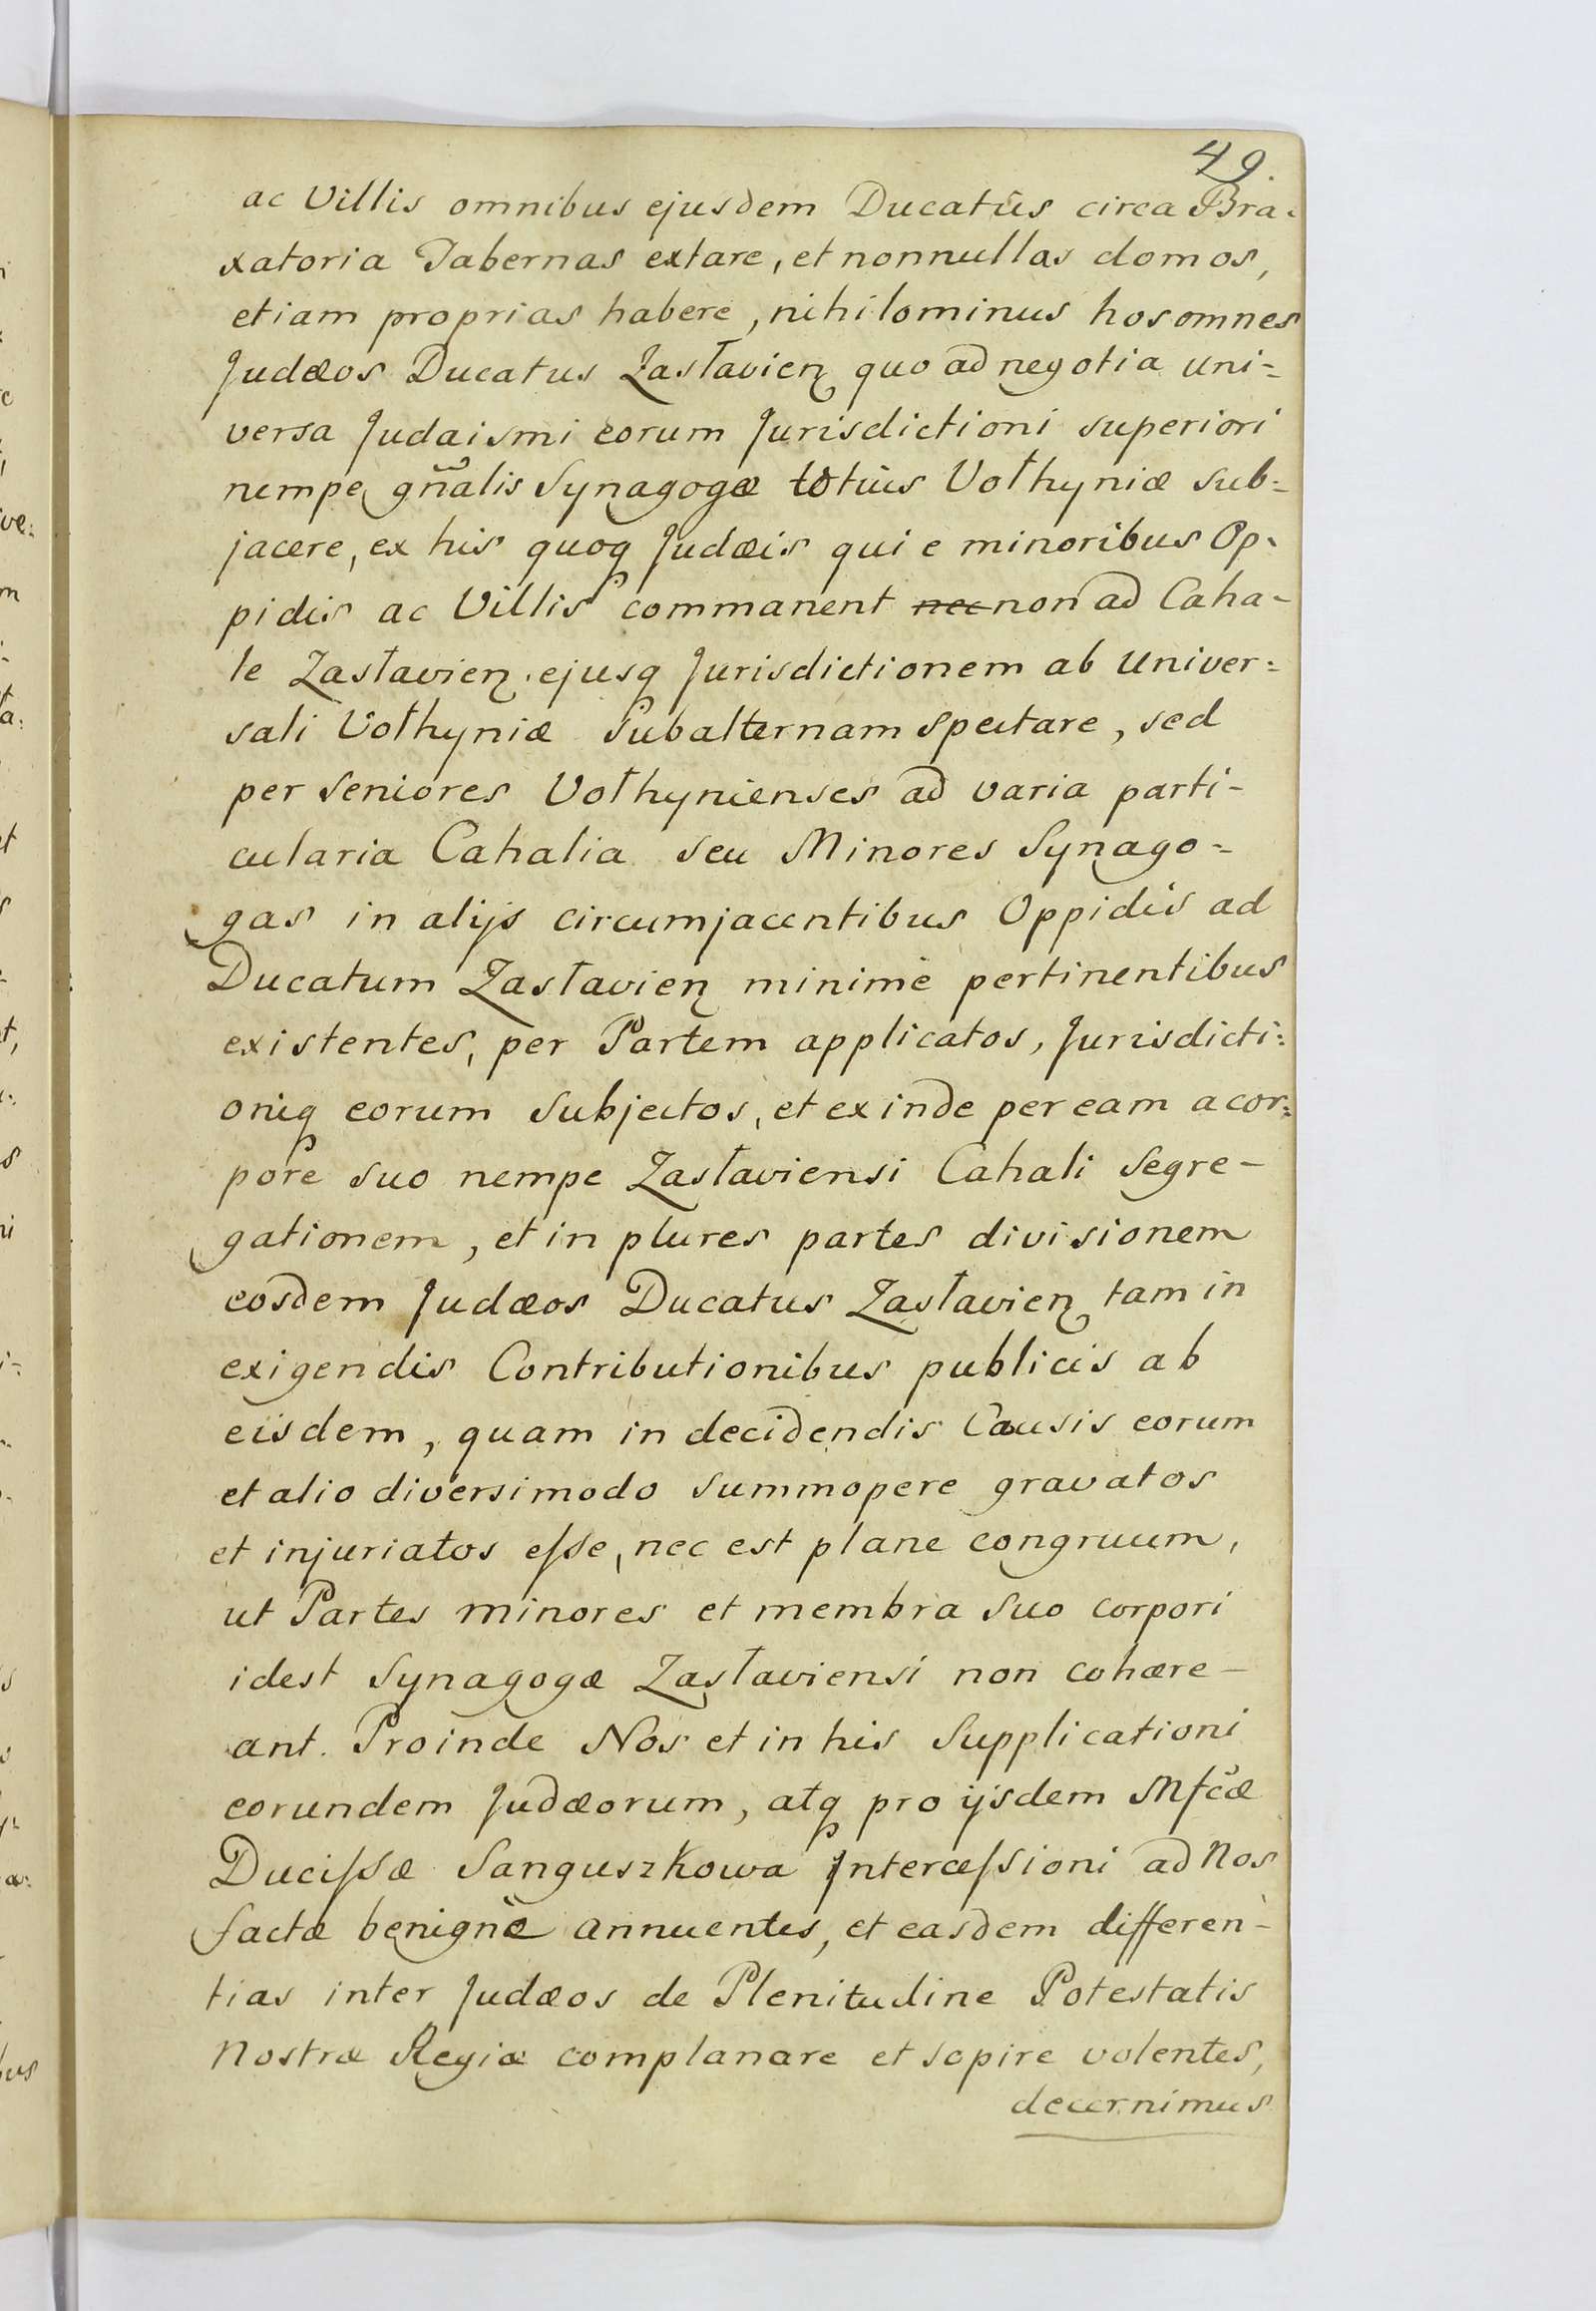 49.
ac Villis omnibus ejusdem Ducatûs circa Bra-
xatoria Tabernas extare, et nonnullas domos,
etiam proprias habere, nihilominus hos omnes
Judæos Ducatus Zasłavien quo ad negotia uni=
versa Judaismi eorum Jurisdictioni superiori
nempe gñalis Synagogæ totius Vołhyniæ sub=
jacere, ex his quoq Judæis qui e minoribus Op-
pidis ac Villis commanent nec non ad Caha-
le Zasłavien. ejusq Jurisdictionem ab Univer=
sali Vołhyniæ Subalternam spectare, sed
per Seniores Vołhynienses ad varia parti-
cularia Cahalia seu Minores Synago=
gas in alijs circumjacentibus Oppidis ad
Ducatum Zasłavien minimè pertinentibus
existentes, per Partem applicatos, Jurisdicti=
oniq eorum Subjectos, et exinde per eam a cor=
pore suo nempe Zasłaviensi Cahali Segre-
gationem, et in plures partes divisionem
eosdem Judæos Ducatus Zasłavien tam in
exigendis Contributionibus publicis ab
eisdem, quam in decidendis Causis eorum
et alio diversimodo summopere gravatos
et injuriatos esse, nec est plane congruum,
ut Partes minores et membra suo corpori
idest Synagogæ Zasłaviensi non cohære-
ant. Proinde Nos et in his Supplicationi
eorundem Judæorum, atq pro ijsdem Mfcæ
Ducissæ Sanguszkowa Intercessioni ad Nos
factæ benignè annuentes, et easdem differen-
tias inter Judæos de Plenitudine Potestatis
Nostræ Regiæ complanare et sopire volentes,
decernimus